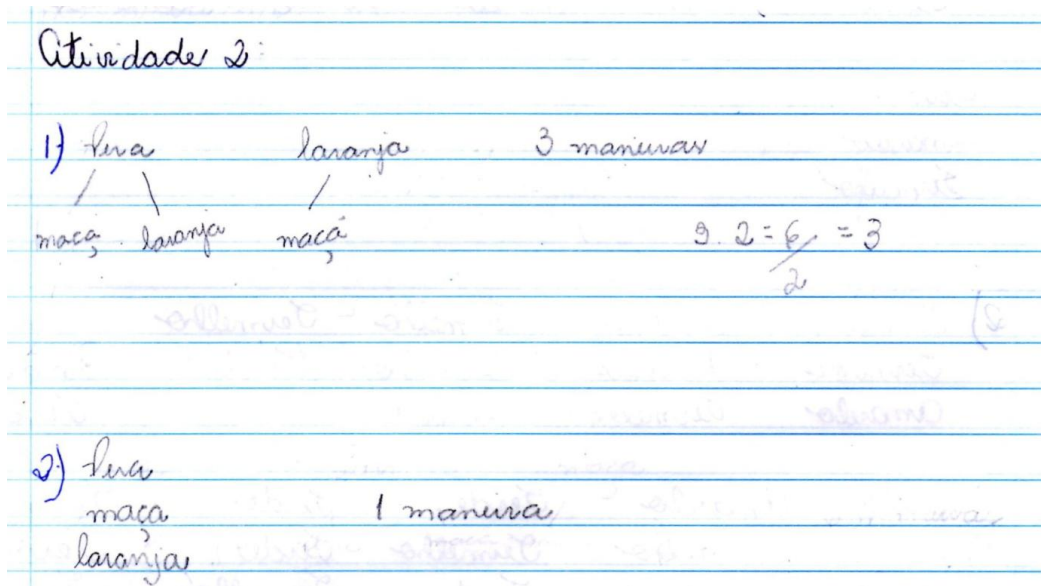 Atividade 2:
1) Pera laranja 3 maneiras
maçã laranja maçã 3. 2 = 6/2 = 3
2) Pera
maçã 1 maneira
laranja